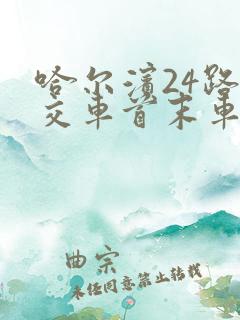 哈尔滨24路
交车首末车
曲宗
未经同意禁止转载